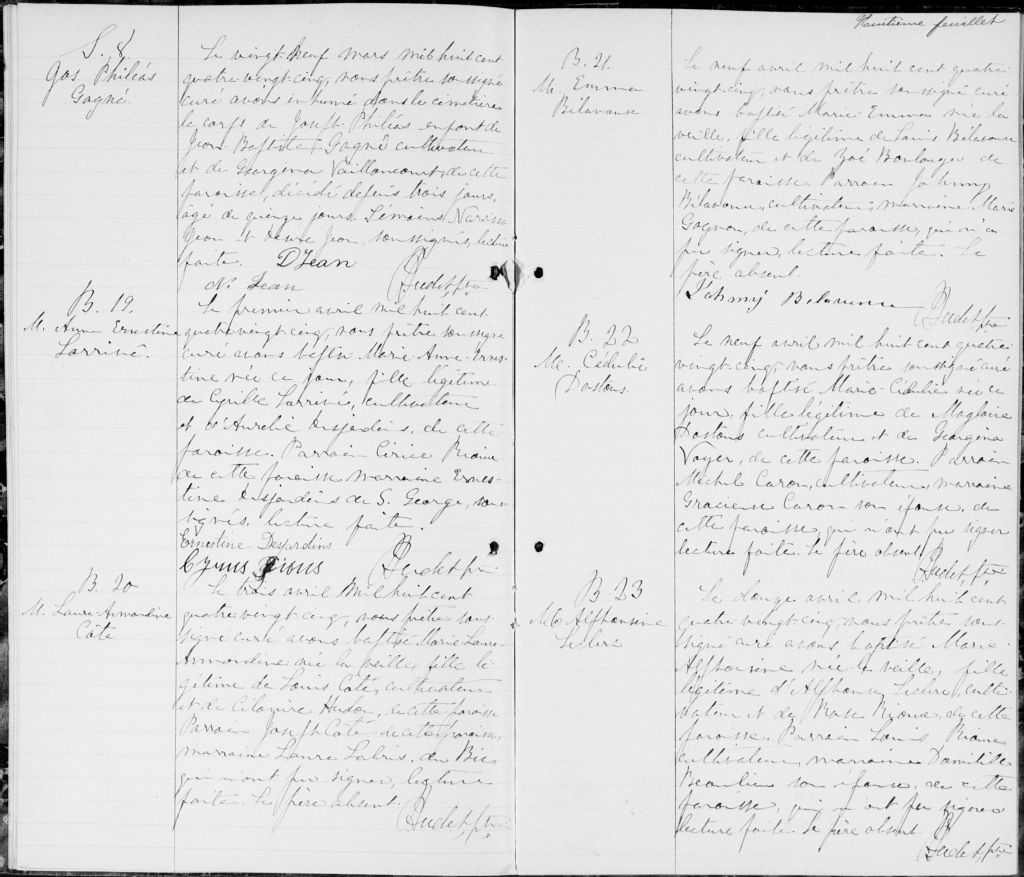 S. 8
Jos Philéas
Gagné
Le vingt neuf mars mil huit cent
quatre vingt cinq, nous prêtre soussigné
curé avons inhumé dans le cimetière
le corps de Joseph Philéas enfant de
Jean Baptiste Gagné cultivateur
et de Georgina Vaillancourt, de cette
paroisse, décédé depuis trois jours,
âgé de quinze jours. Témoins Narcisse
Jean et Désiré Jean, soussignés, lecture
faite. D Jean
Ns Jean
Audet, ptre
B. 19.
M. Anne Ernestine
Larrivé.
Le premier avril mil huit cent
quatre vingt cinq, nous prêtre soussigné
curé avons baptisé Marie-Anne-Ernes-
tine née ce jour, fille légitime
de Cyrille Larrivé, cultivateur
et d'Aurelie Desjardins, de cette
paroisse. Parrain Cirice Rioux
de cette paroisse marraine Ernes-
tine Desjardins de S. George, sous-
signés, lecture faite.
Ernestine Desjardins
Rious
Audet ptre
B. 20
M. Laure-Armandine
Côté
Le trois avril mil huit cent
quatre vingt cinq, nous prêtre sous-
signé curé avons baptisé Marie Laure-
Armandine née la veille, fille lé-
gitime de Louis Côté, cultivateur
et de Hudon, de cette paroisse
Parrain Joseph Côté de cette paroisse,
marraine Laure du Bic,
qui n'ont pu signer, lecture
faite. Le père absent.
Audet, ptre
Huitième feuillet
B. 21.
M. Emma
Bélavance
Le neuf avril mil huit cent quatre-
vingt-cinq, nous prêtre soussigné curé
avons baptisé Marie-Emma née la
veille, fille légitime de Louis Bélavance
cultivateur et de Zoé Boulanger de
cette paroisse. Parrain Johnny
Bélavance, cultivateur, marraine Marie
Gagnon, de cette paroisse, qui n'a
pu signer, lecture faite. Le
père absent.
Johnny
Audet, ptre
B. 22
M. Cédulie
Dastous.
Le neuf avril mil huit cent quatre-
vingt-cinq, nous prêtre soussigné curé
avons baptisé Marie-Cédulie née ce
jour, fille légitime de Magloire
Dastous cultivateur et de Georgina
Voyer, de cette paroisse. Parrain
Michel Caron, cultivateur, marraine
Gracieuse Caron son épouse, de
cette paroisse, qui n'ont pu signer
lecture faite. Le père absent
Audet, ptre
B. 23
M. Alphonsine
Leclerc
Le douze avril mil huit cent
quatre vingt-cinq, nous prêtre sous-
signé curé avons baptisé Marie-
Alphonsine née la veille, fille
légitime d'Alphonse Leclerc, culti-
vateur et de Rose Rioux, de cette
paroisse. Parrain Louis Rioux
cultivateur, marraine Domitille
Beaulieu son épouse, de cette
paroisse, qui n'ont pu signer
lecture faite. Le père absent.
Audet, ptre